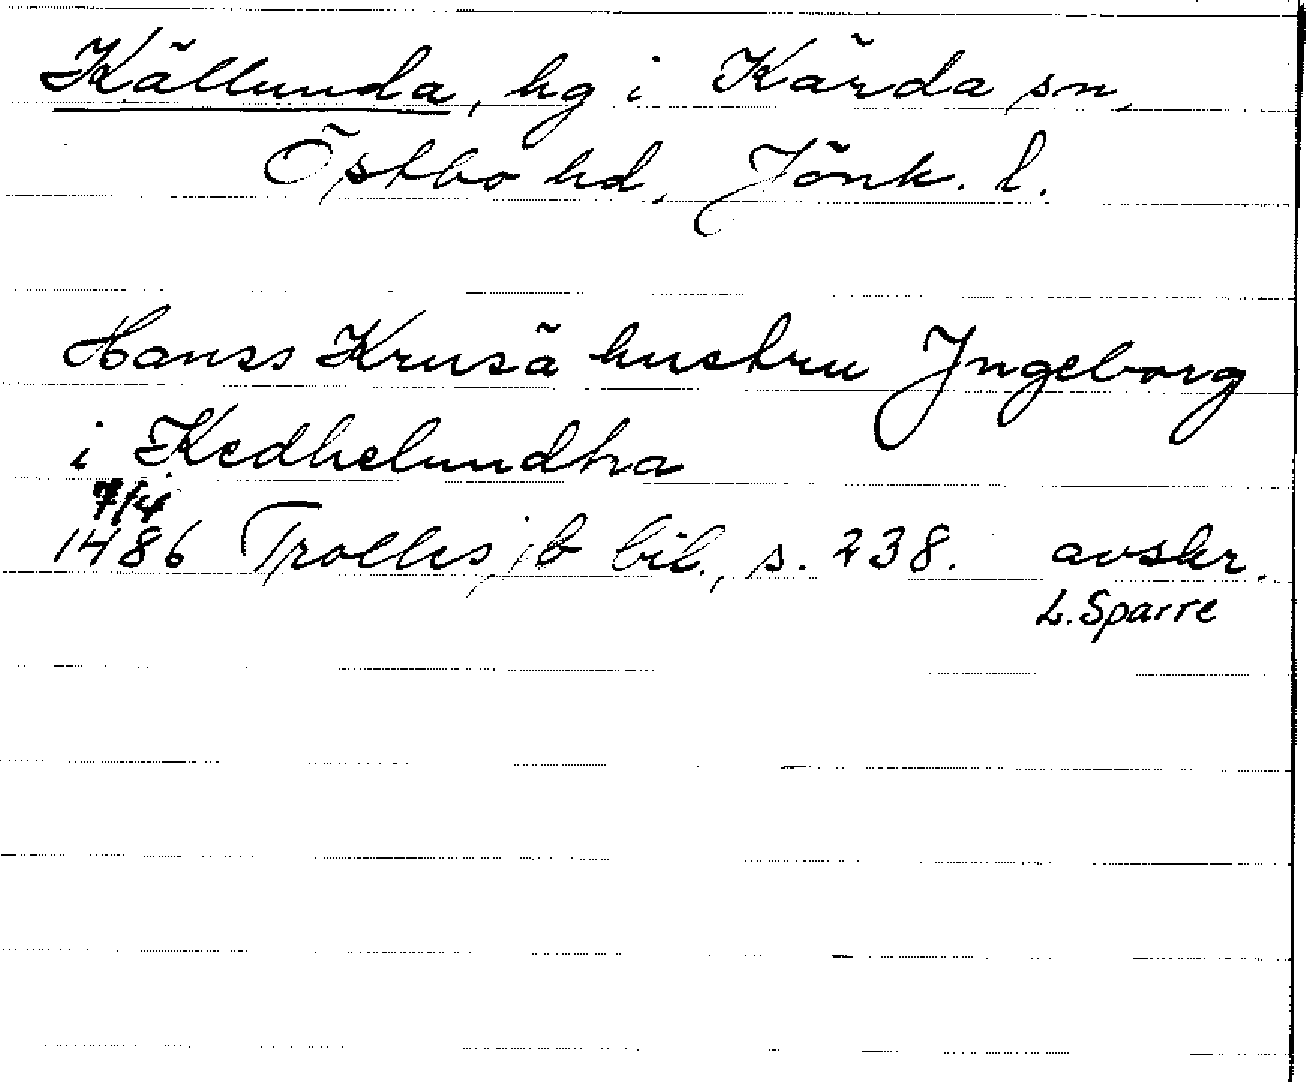 Källunda, hg i Kärda sn,
Östbo hd, Jönk. l.
Hanss Krusä hustru Jngeborg
i Kedhelundha
7/4
1486 Trolles jb bil., s. 238. avskr.
L. Sparre